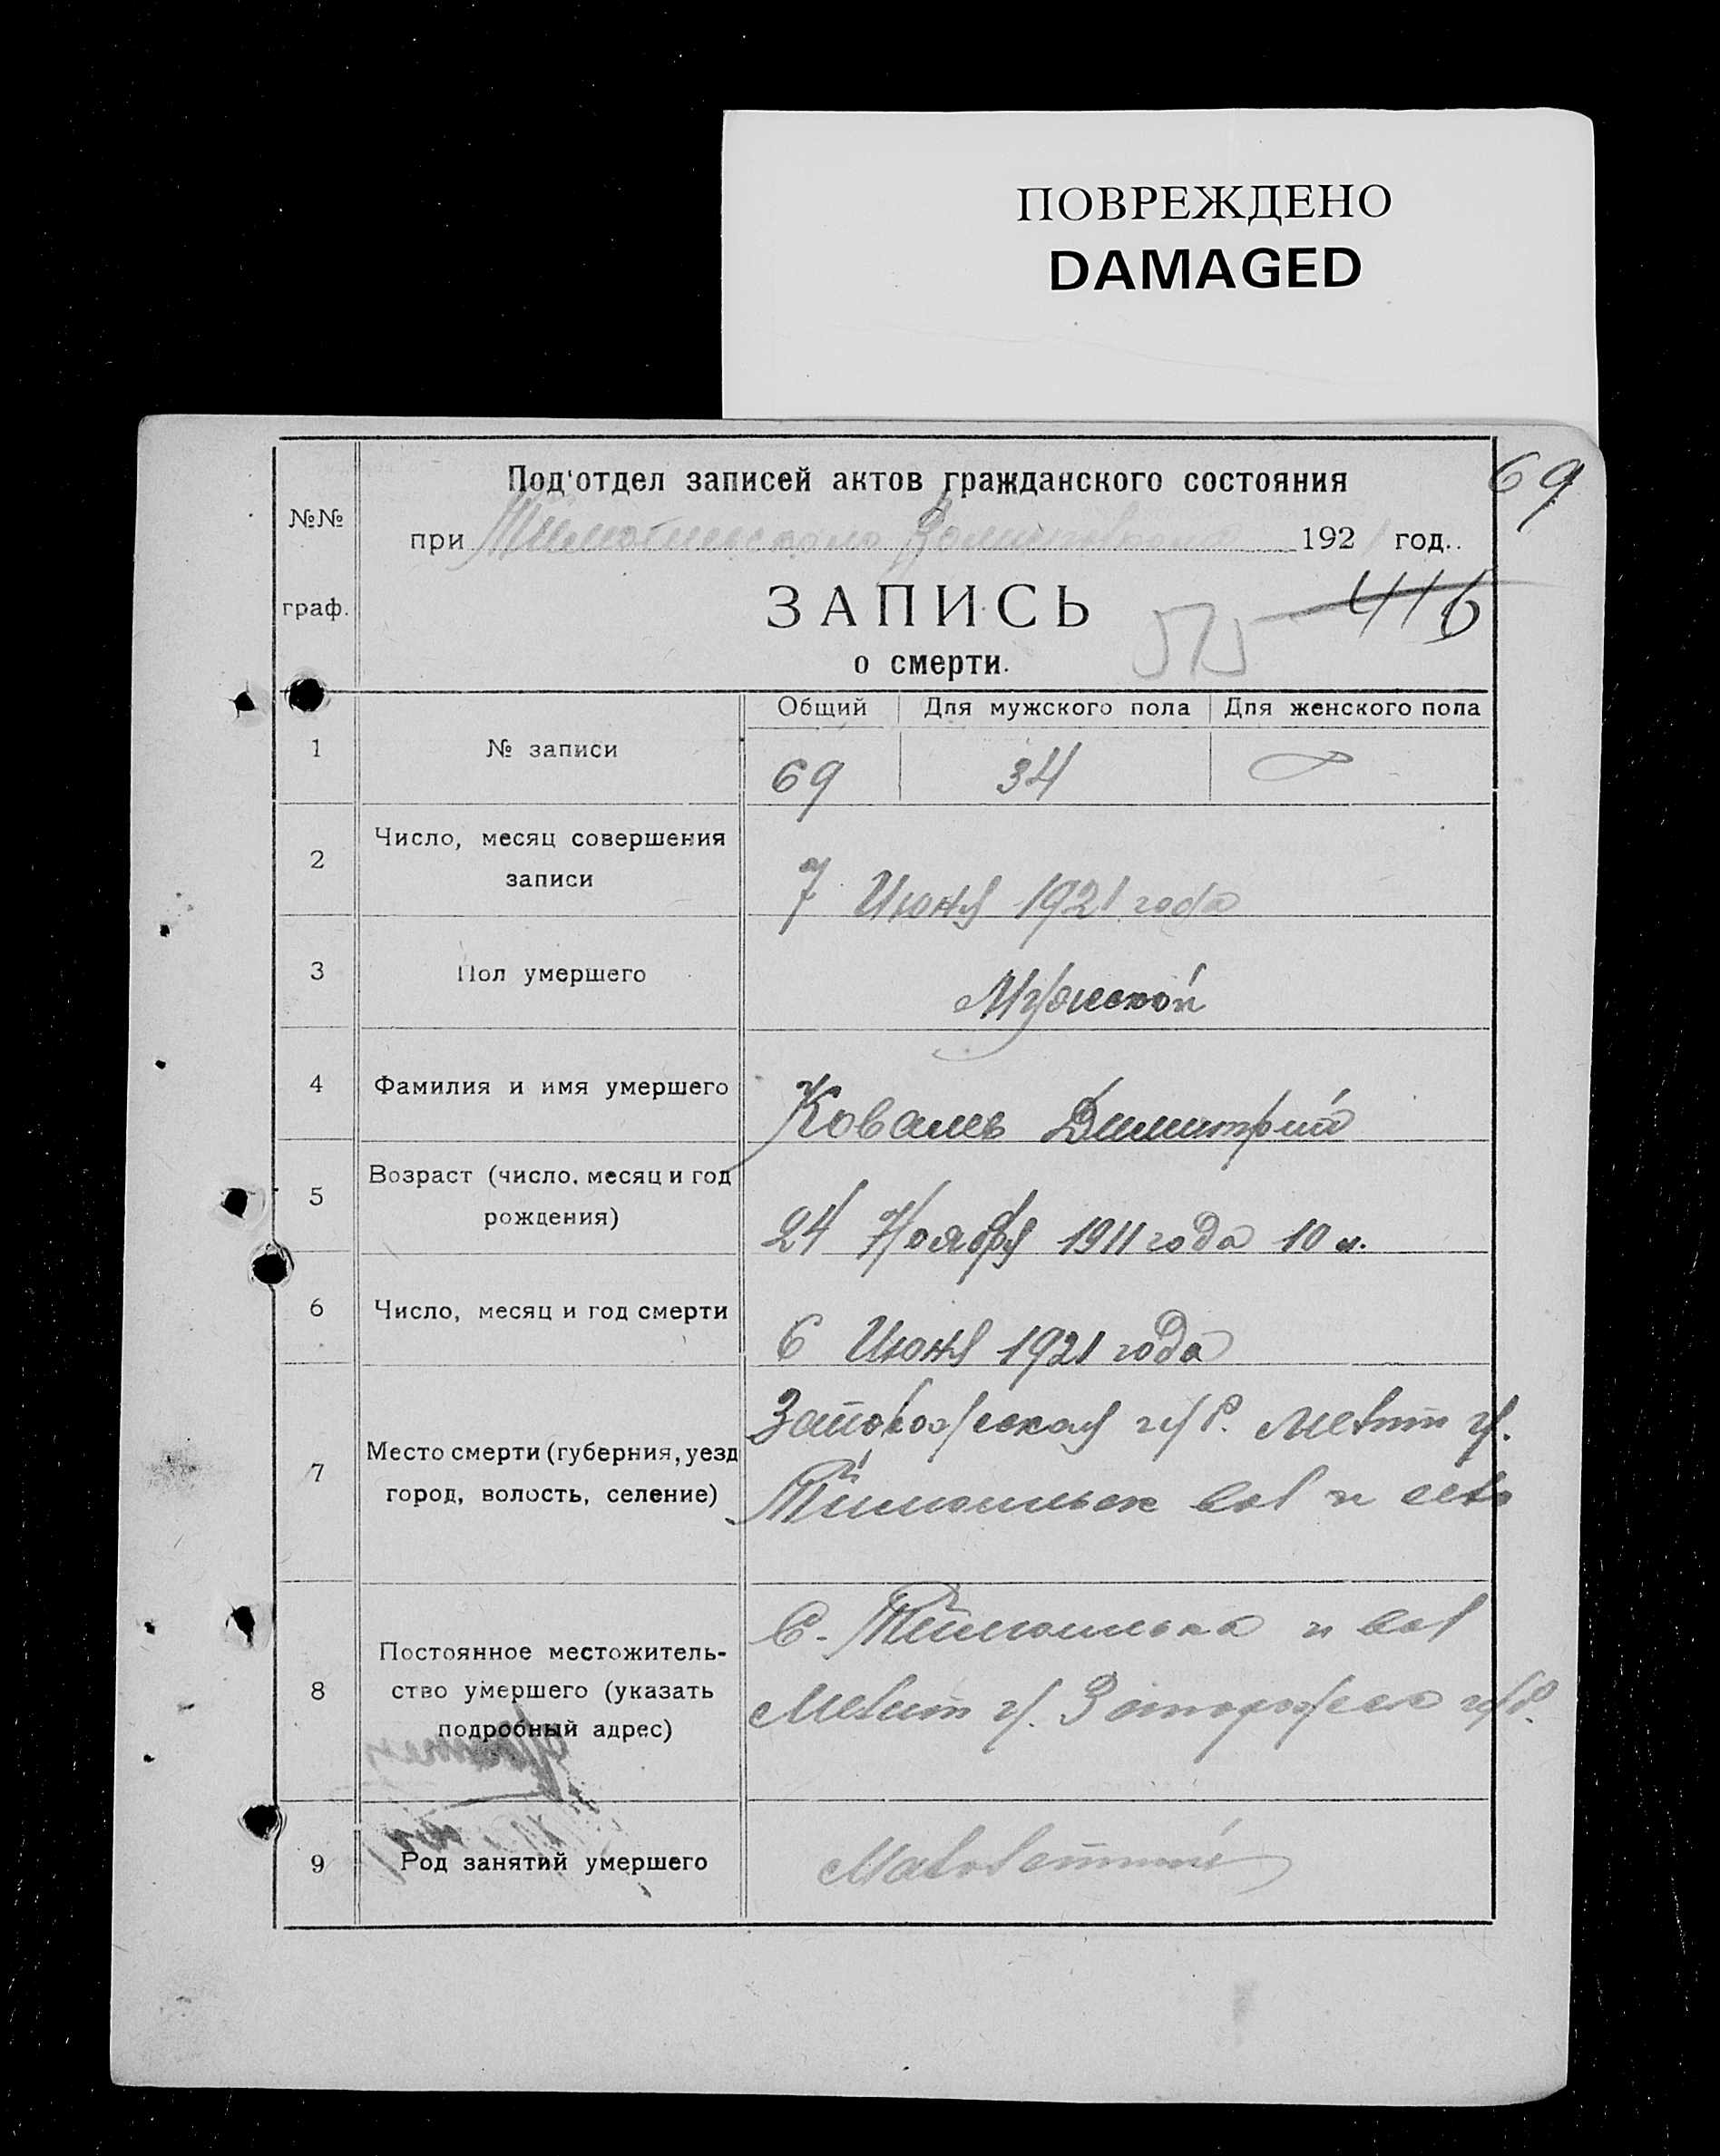 ПОВРЕЖДЕНО
DAMAGED
69
№№
граф.
Под'отдел записей актов гражданского состояния
при 192 год..
ЗАПИСЬ
416
515
о смерти.
Общий Для мужского пола Для женского пола
1 № записи 69 34
2 Число, месяц совершения
записи
7 Июня 1921 года
3 Пол умершего Мужской
4 Фамилия и имя умершего Коваль Димитрий
5 Возраст (число, месяц и год
рождения)
24 Ноября 1911 года 10 л.
6 Число, месяц и год смерти 6 Июня 1921 года
7 Место смерти (губерния, уезд
город, волость, селение)
Запорожская губ. Мелит у.
вол и село
8 Постоянное местожитель-
ство умершего (указать
подробный адрес)
С. и вол
Мелит у. Запорожск губ.
9 Род занятий умершего Малолетний